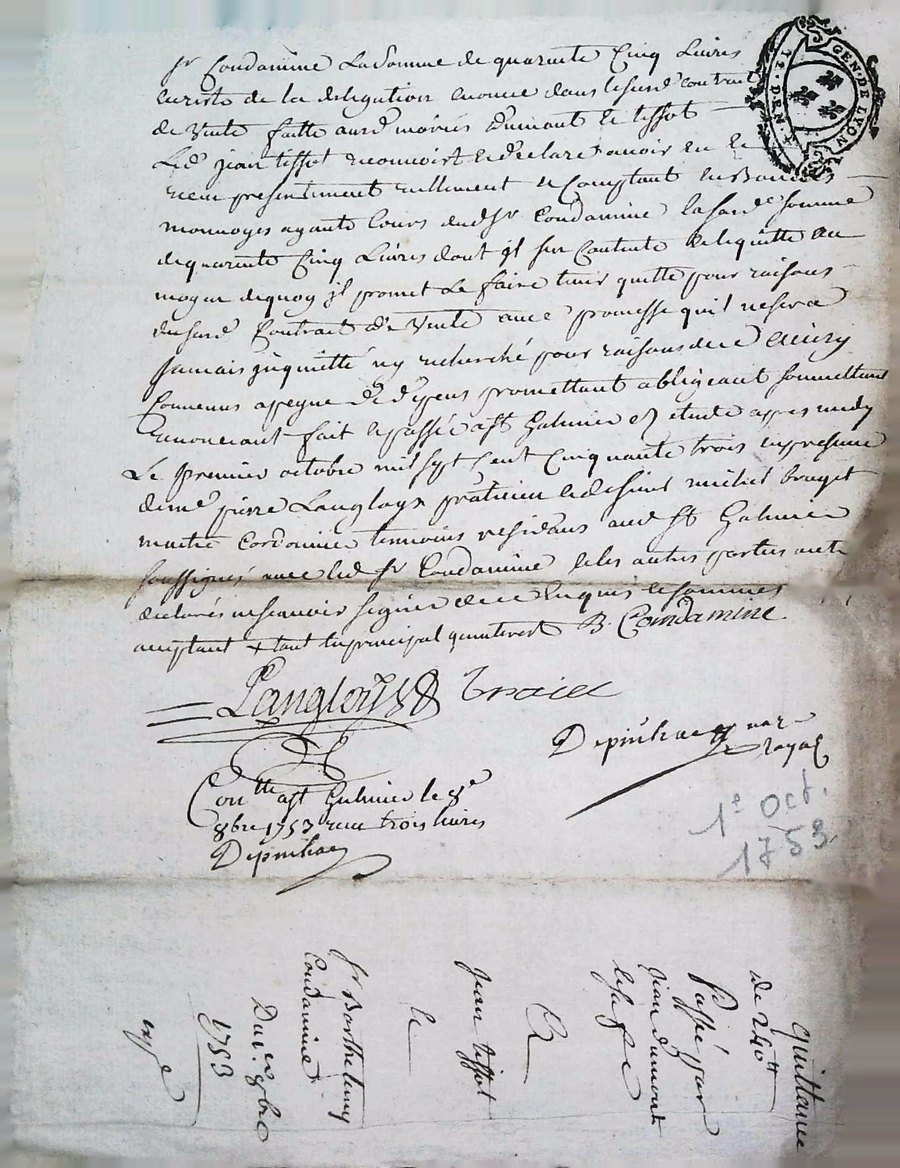 Sr Condamine La Somme de quarente Cinq Livres
de la delegation enonce dans le susd contrat
de Vente faitte aud mariés dumont Et tissot
Led jean tissot reconnoist et declare avoir eu et
receu presentement reellement et Comptant en Bonnes
monnoyes ayants Cours dud Sr Condamine lasusde somme
de quarente Cinq Livres dont il sen Contente et le quitte au
moyen dequoy il promet Le faire tenir quitte pour raisons
dususd Contrat de Vente avec promesse quil ne sera
Jamais inquietté ny recherché pour raisons de ce
Convenus a peyne de depens promettant obligeant soumettant
renonceant fait et passée a St Galmier en etude apres midy
Le premier octobre mil sept Cent Cinquante trois en presence
de me pierre Langloys praticien et de sieur michel
maitre Cordonnier temoins residans aud St Galmier
soussignés avec led Sr Condamine et les autres parties ont
declarés ne scavoir signer de ce Enquis et sommés
acceptant + tant en principal B. Condamine
Langloys
Depinhac nore
royal
Conlle a St Galmier le 8e
8bre 1753 receu trois livres
Depinhac
1e Oct.
1753
Quittance
de 240tt
Passé par
jean dumont
&
Jean tissot
le
Sr Barthelemy
Condamine
Du 1er 8bre
1753
expe
GEN. DE LYON